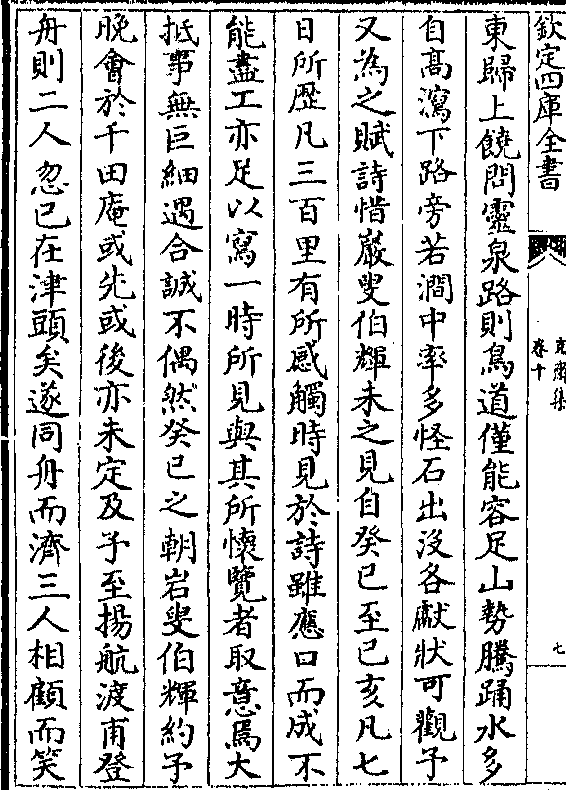 欽定四庫全書
克齋集
卷十
七
東歸上饒問靈泉路則鳥道僅能容足山勢騰踊水多
自高瀉下路旁若澗中率多怪石出沒各獻狀可觀予
又為之賦詩惜巖叟伯輝未之見自癸巳至己亥凡七
日所歴凡三百里有所感觸時見於詩雖應口而成不
能盡工亦足以寫一時所見與其所懷覽者取意焉大
抵事無巨細遇合誠不偶然癸巳之朝岩叟伯輝約予
晚會於千田庵或先或後亦未定及予至揚航渡甫登
舟則二人忽已在津頭矣遂同舟而濟三人相顧而笑